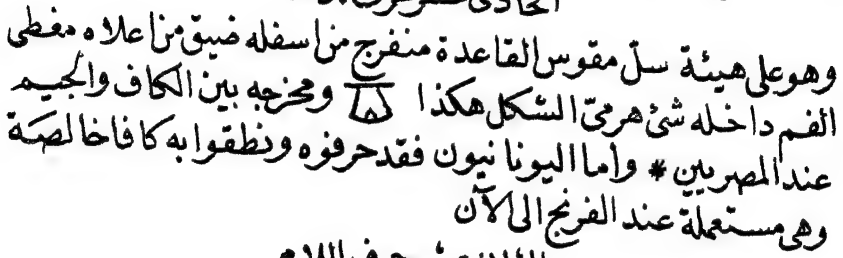 وهو على هيئة سل مقوس القاعدة منفرج من اسفله ضيق من اعلاه مغطى
الفم داخله شئ هرمىّ الشكل هكذا ومخرجه بين الكاف والجيم
عند المصريين * واما اليونانيون فقد حرفوه ونطقوا به كافا خالصة
وهى مستعملة عند الفرنج الى الآن